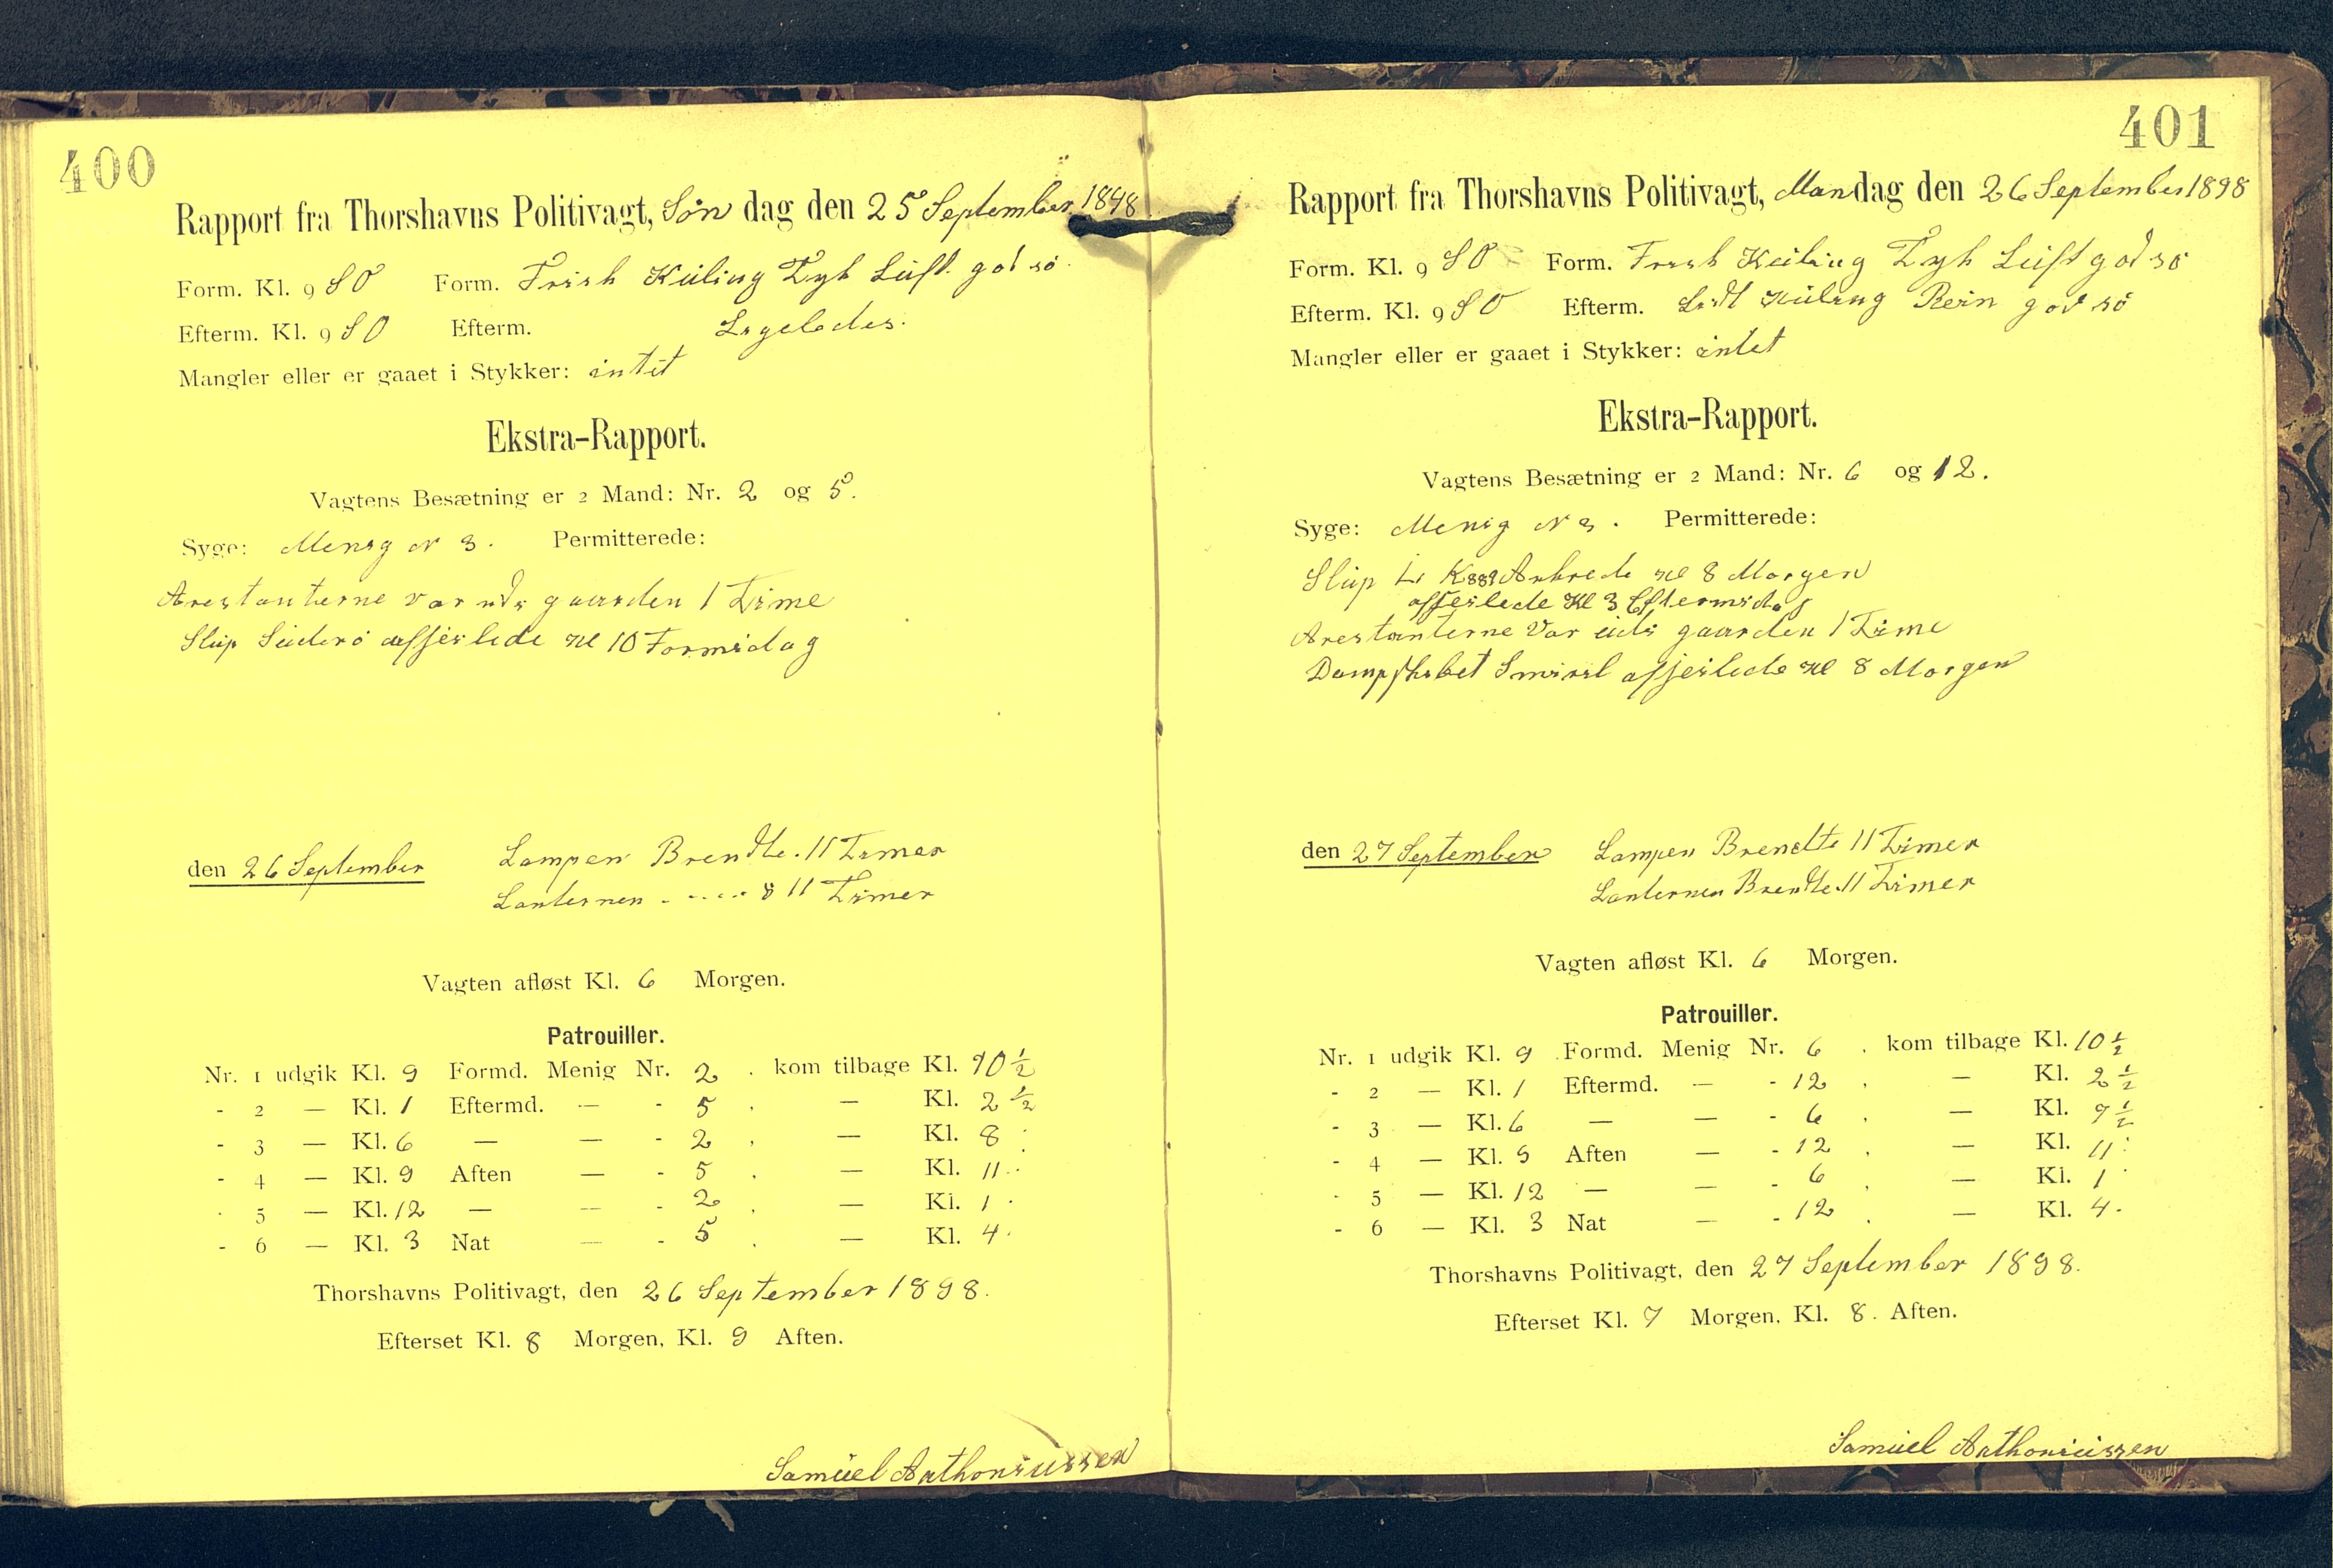 400
Rapport fra Thorshavns Politivagt, Søn dag den 25 September 1898
Form. Kl. 9 SO Form. Frisk Kuling Tyk Luft god sö
Efterm. Kl. 9 SO Efterm. Ligeledes.
Mangler eller er gaaet i Stykker: intet
Ekstra-Rapport.
Vagtens Besætning er 2 Mand: Nr. 2 og 5.
Syge: Menig N 3. Permitterede:
Arestanterne var udi gaarden 1 Time
Slup Suderö affseilede Kl 10 Formidag
den 26 September Lampen Brendte. 11 Timer
Lanternen - - - - - 11 Timer
Vagten afløst Kl. 6 Morgen.
Patrouiller.
Nr. 1 udgik Kl. 9 Formd. Menig Nr. 2 . kom tilbage Kl. 10 ½
- 2 — Kl. 1 Eftermd. — - 5 . — Kl. 2 ½
- 3 — Kl. 6 — — - 2 . — Kl. 8
- 4 — Kl. 9 Aften — - 5 . — Kl. 11
- 5 — Kl. 12 — — - 2 . — Kl. 1
- 6 — Kl. 3 Nat — - 5 . — Kl. 4
Thorshavns Politivagt, den 26 September 1898.
Efterset Kl. 8 Morgen, Kl. 9 Aften.
Samüel Anthoniussen
401
Rapport fra Thorshavns Politivagt, Mandag den 26 September 1898
Form. Kl. 9 SO Form. Frisk Kuling Tyk Luft god sö
Efterm. Kl. 9 SO Efterm. Lidt Kuling Rein god sö
Mangler eller er gaaet i Stykker: intet
Ekstra-Rapport.
Vagtens Besætning er 2 Mand: Nr. 6 og 12.
Syge: Menig N 3. Permitterede:
Slup Ankrede Kl 8 Morgen
affseilede Kl 3 Eftermidag
Arestanterne Var udi gaarden 1 Time
Dampskibet Smiril afseilede Kl 8 Morgen
den 27 September Lampen Brendte 11 Timer
Lanternen Brendte. 11 Timer
Vagten afløst Kl. 6 Morgen.
Patrouiller.
Nr. 1 udgik Kl. 9 Formd. Menig Nr. 6 . kom tilbage Kl. 10 ½
- 2 — Kl. 1 Eftermd. — - 12 . — Kl. 2 ½
- 3 — Kl. 6 — — - 6 . — Kl. 7 ½
- 4 — Kl. 9 Aften — - 12 . — Kl. 11
- 5 — Kl. 12 — — - 6 . — Kl. 1
- 6 — Kl. 3 Nat — - 12 . — Kl. 4.
Thorshavns Politivagt, den 27 September 1898.
Efterset Kl. 7 Morgen, Kl. 8. Aften.
Samüel Anthoniussen